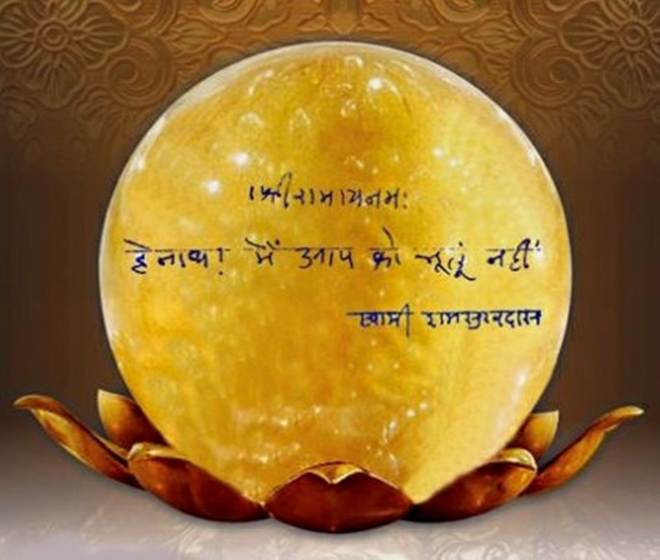 ।श्रीरामाय नमः
हे नाथ! मैं आप को भूलूं नहीं
स्वामी रामसुखदास